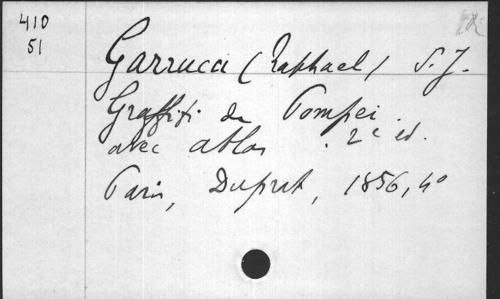 410
51
Garrucci (Raphael) S. J.
Graffiti de Pompei.
avec atlas. 2e éd.
Paris, Duprat, 1856, 4°